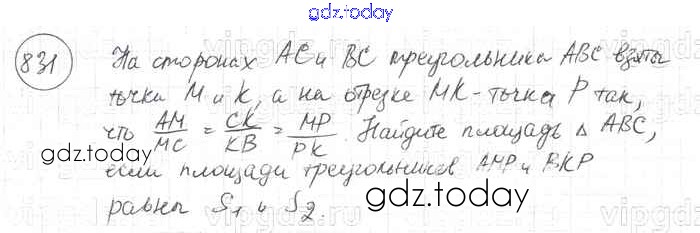 gdz.today
831 На сторонах AC и BC треугольника ABC взяты
точки M и K, а на отрезке MK - точка P так,
что AM/MC = CK/KB = MP/PK. Найдите площадь Δ ABC,
gdz.today
если площади треугольников AMP и BKP
равны S1 и S2.
gdz.today